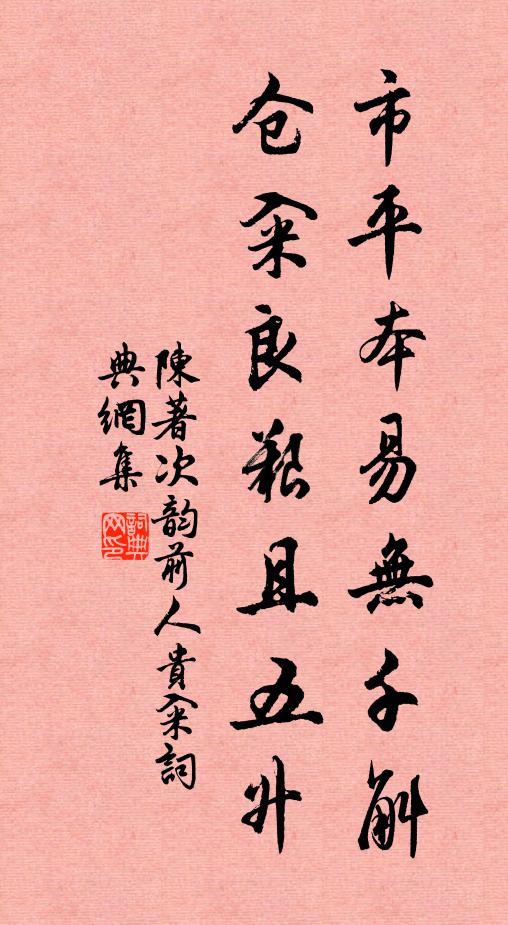 市平本易無千斛
仓籴良艱且五升
陳著次韵前人貴籴詞
典網集
詞典
网印